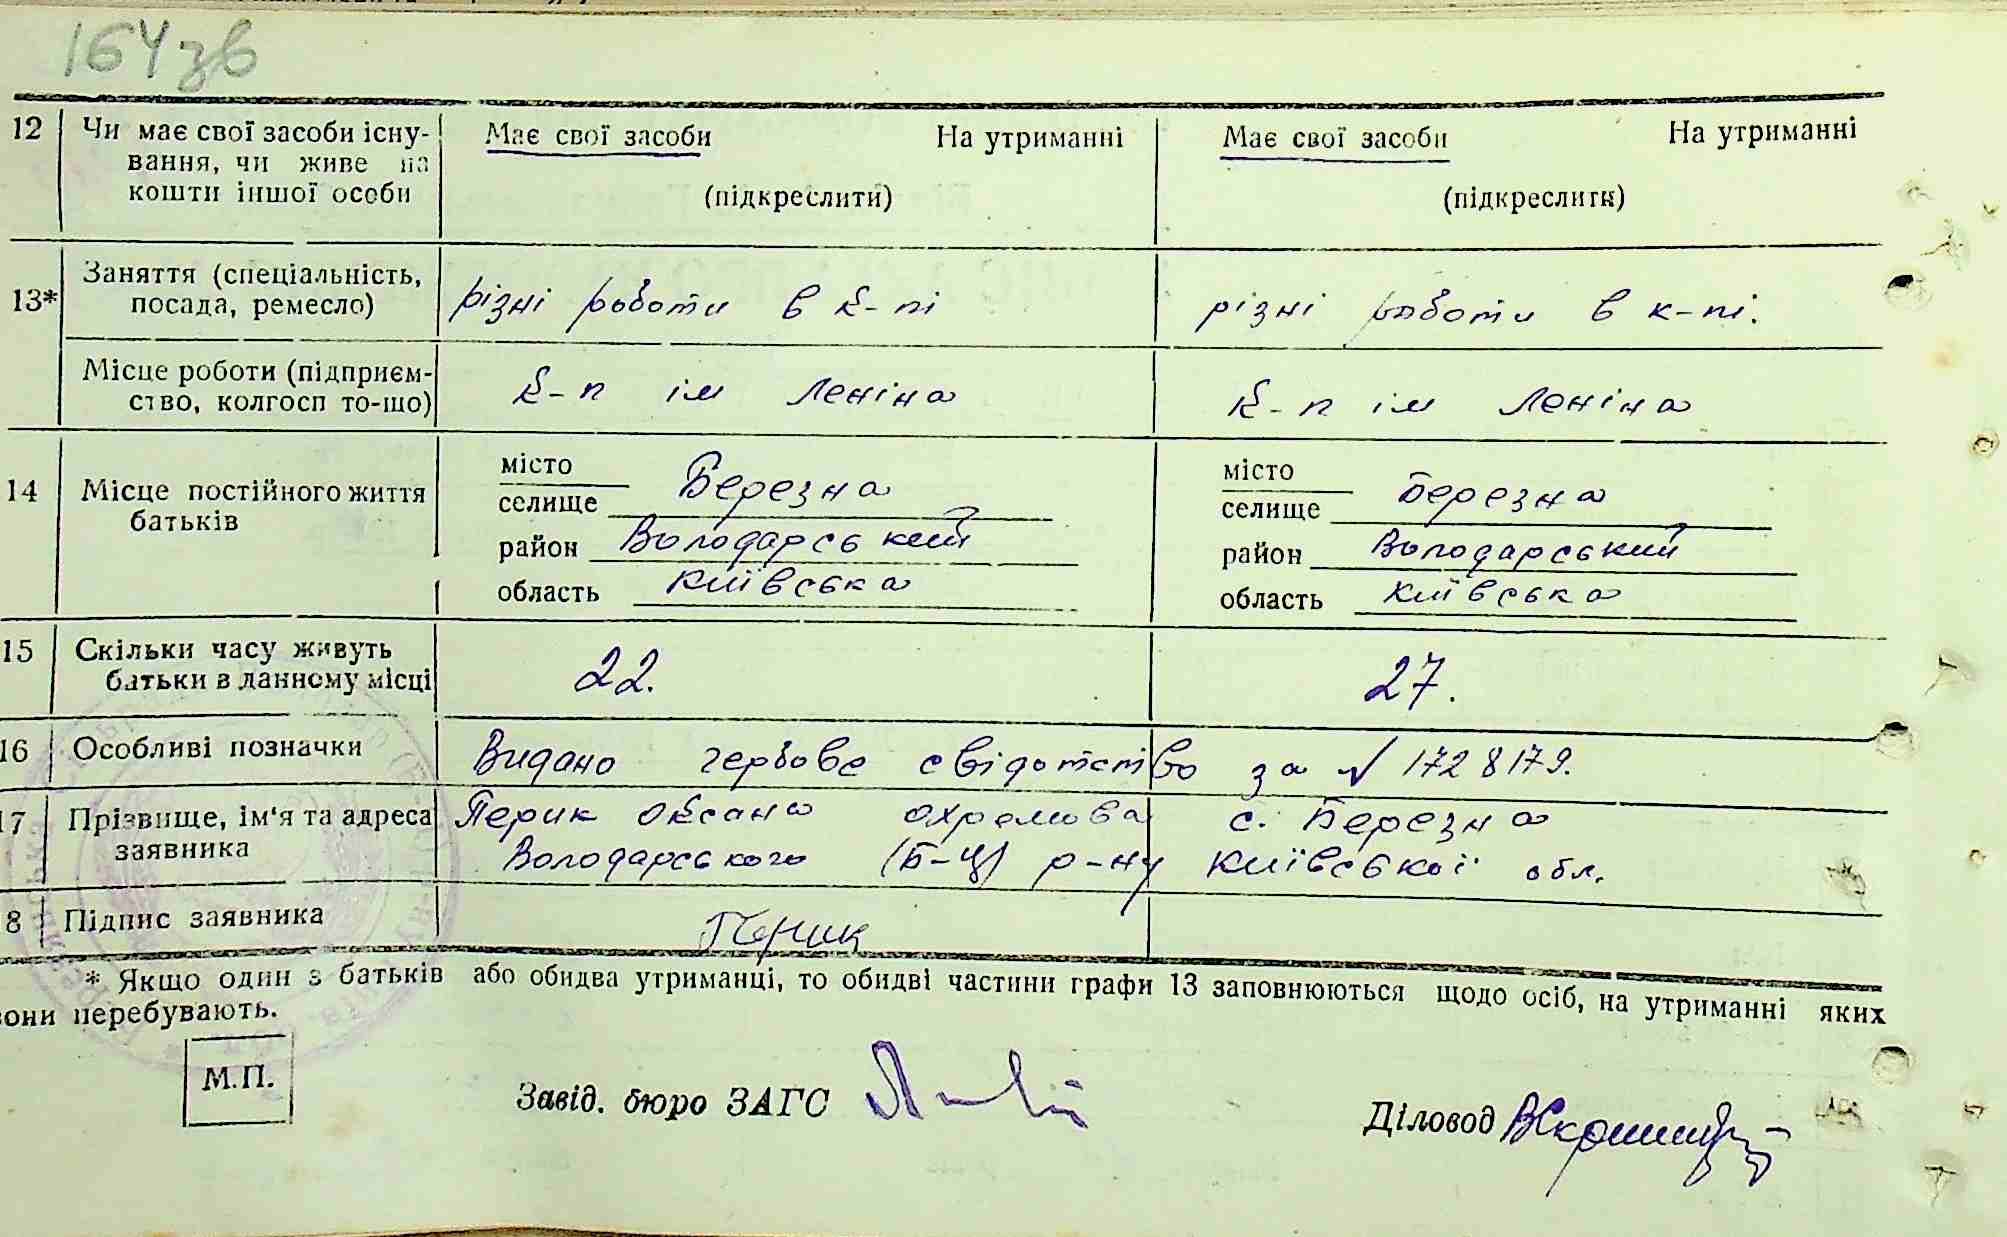 164зв
12 Чи має свої засоби існу- Має свої засоби На утриманні Має свої засоби На утриманні
вання, чи живе на
кошти іншої особи (підкреслити) (підкреслити)
13* Заняття (спеціальність,
посада, ремесло) різні роботи в к-пі різні роботи в к-пі.
Місце роботи (підприєм-
ство, колгосп то-що) к-п ім Леніна к-п ім Леніна
14 Місце постійного життя
батьків
місто
селище Березна
район Володарський
область Київська
місто
селище Березна
район Володарський
область Київська
15 Скільки часу живуть
батьки в данному місці 22. 27.
16 Особливі позначки Видано гербове свідотство за № 1728179.
17 Прізвище, ім'я та адреса Перик Оксана Охремова с. Березна
заявника Володарського (Б-Ц) р-ну Київської обл.
8 Підпис заявника Перик
* Якщо один з батьків або обидва утриманці, то обидві частини графи 13 заповнюються щодо осіб, на утриманні яких
вони перебувають.
М.П.
Завід. бюро ЗАГС
Діловод